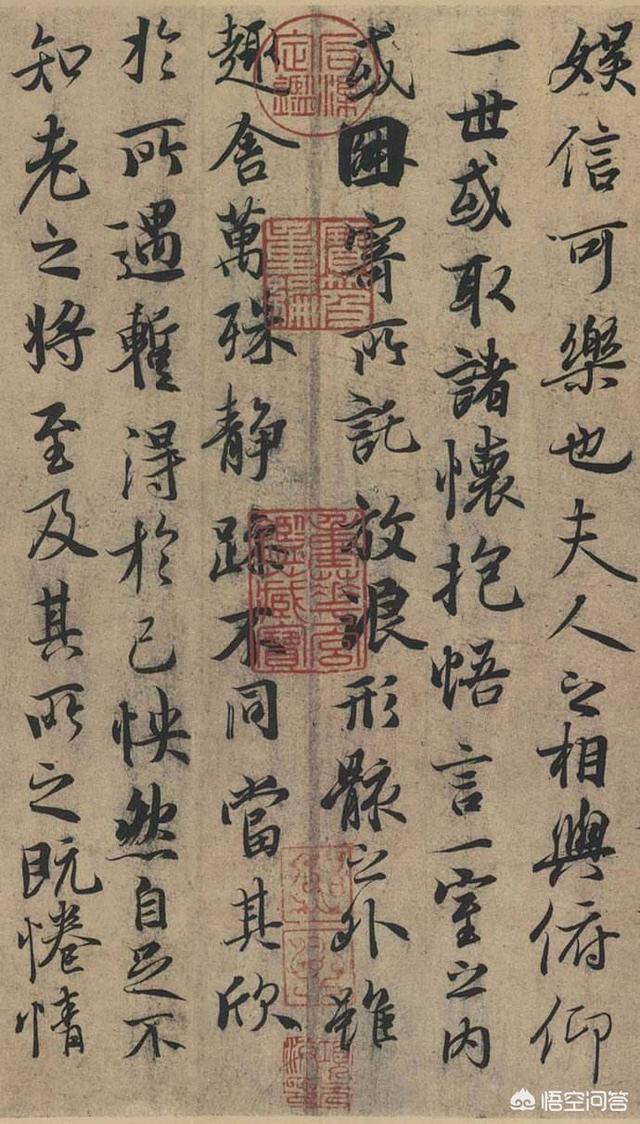 娛信可樂也夫人之相與俯仰
一世或取諸懷抱悟言一室之內
或因寄所託放浪形骸之外雖
趣舍萬殊静躁不同當其欣
於所遇暫得於己怏然自足不
知老之將至及其所之既惓情
石渠定鑑
寶笈重編
重華宮鑑藏寶
悟空问答